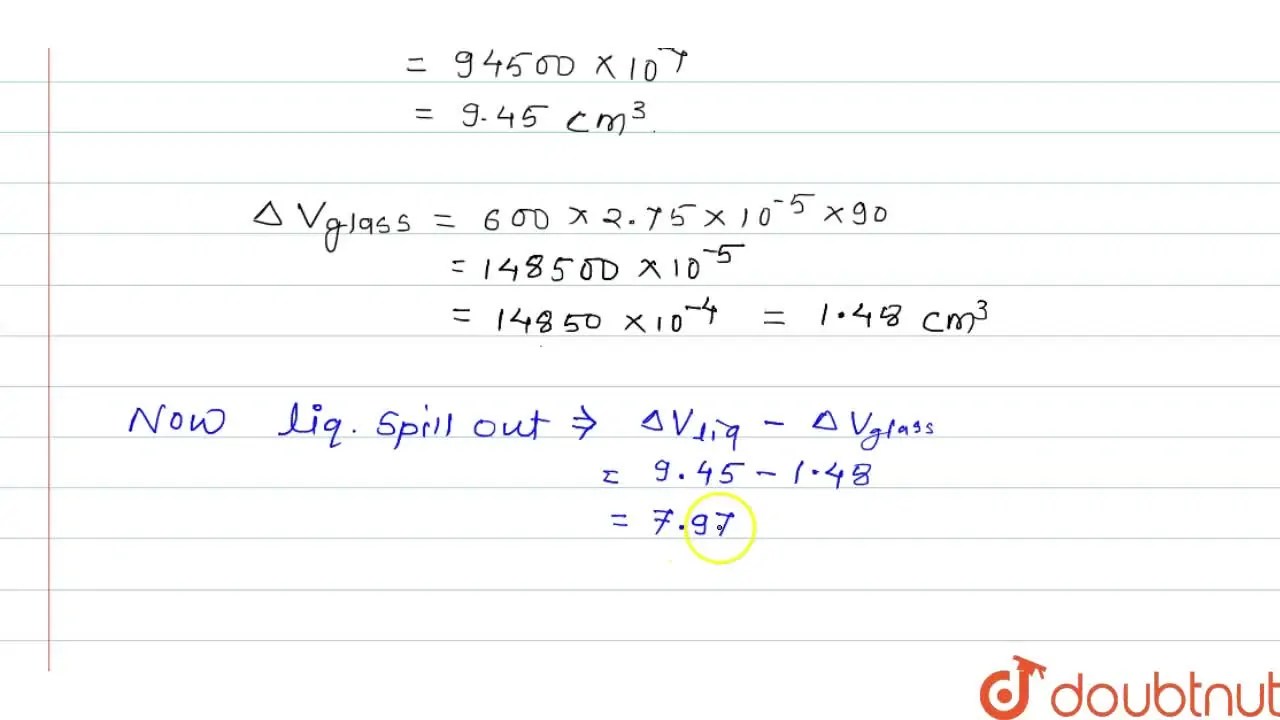 = 94500 × 10
= 9.45 cm³
ΔVglass = 600 × 2.75 × 10⁻⁵ × 90
= 148500 × 10⁻⁵
= 14850 × 10⁻⁴ = 1.48 cm³
Now liq. spill out ⇒ ΔVliq − ΔVglass
= 9.45 − 1.48
= 7.97
doubtnut